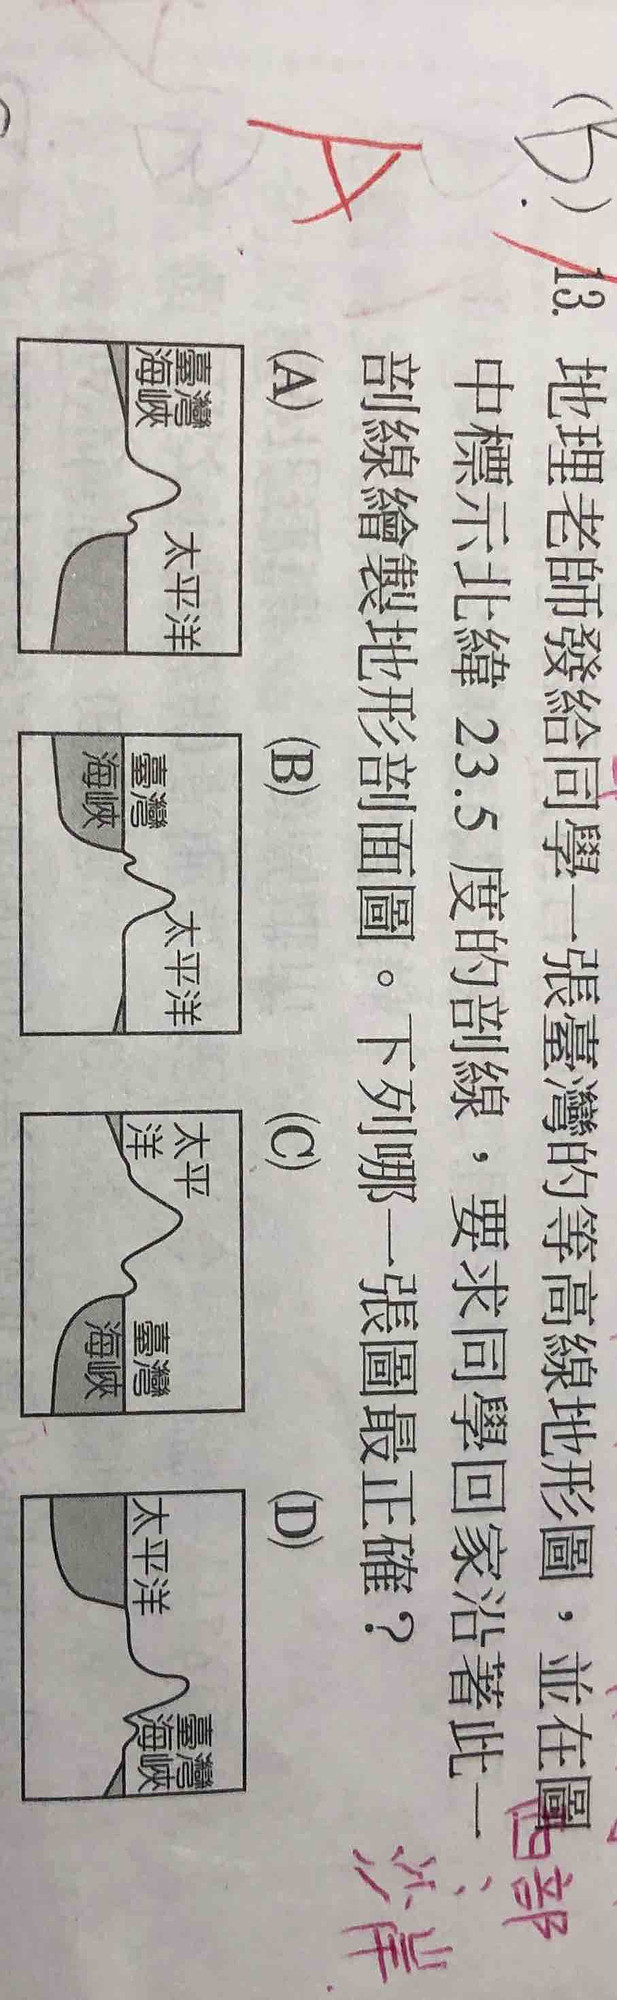 (b.) 13. 地理老師發給同學一張臺灣的等高線地形圖，並在圖
A
中標示北緯 23.5 度的剖線，要求同學回家沿著此一
剖線繪製地形剖面圖。下列哪一張圖最正確？
西部
(A) (B) (C) (D)
臺灣
海峽
太平洋
臺灣
海峽
太平洋
太平
洋
臺灣
海峽
太平洋
臺灣
海峽